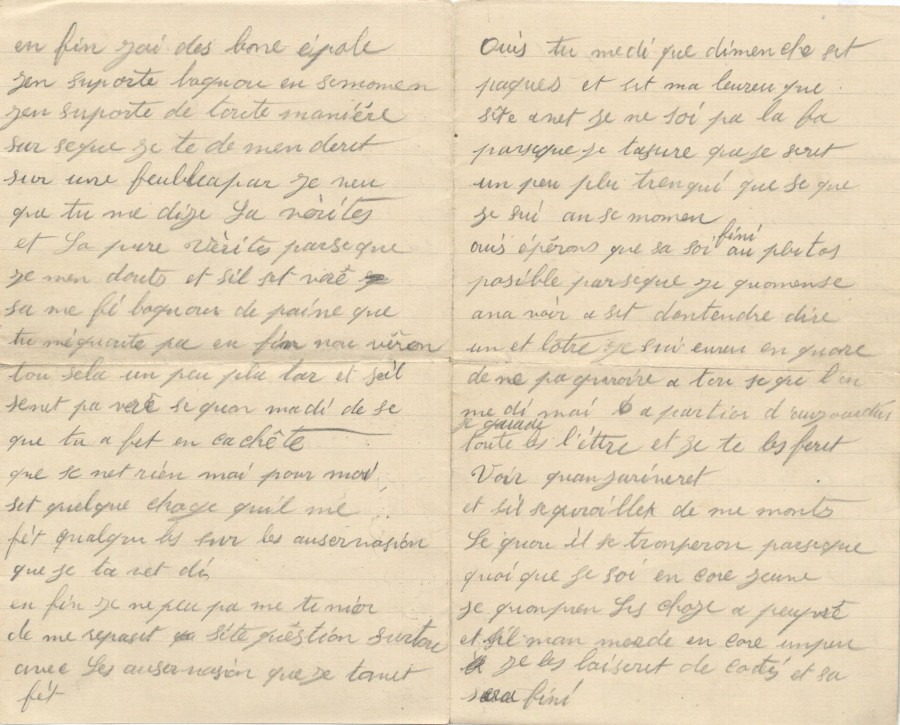 en fin jai des bone épole
jen suporte boquou en se momen
jen suporte de toute maniére
sur seque je te demenderet
sur une feuble a par je veu
que tu me dize La vèrites
et La pure Vèrites parseque
je men douts et sil set verè
sa me fé boquou de paine que
tu méquoute pa en fin nou vèron
tou sela un peu plu tar et seil
senet pa verè sequon ma di de se
que tu a fet en cachête
que se net rien mai pour moi
set quelque choze quil me
fét qualqu les sur les ausernasion
que je ta vet di
en fin je ne peu pa me tenior
de me repasét sète quèstion surtou
avec Les ausernasion que je tavet
fét
Ouis tu me di que dimenche set
paques et set ma leureu que
sète anet je ne soi pa la ba
parseque je tasure que je seret
un peu plu trenqui que se que
je sui au se momen
ouis épérons que sa soi fini au plutos
posible parseque je quomense
ana voir a set dentendre dire
un et lotre je sui eureu en quore
de ne pa quroire a tou se que l'on
me di mai a partior d'ouzourdui
je garde
toute les l'éttre et je te les feret
Voir quan jariveret
et sil se quroille de me monts
Le quou il se tromperon parseque
quoi que je soi en core jeune
je quonpren Les choze a peuprè
et sil man merde en core un peu
je les laiseret de coté et sa
sera fini